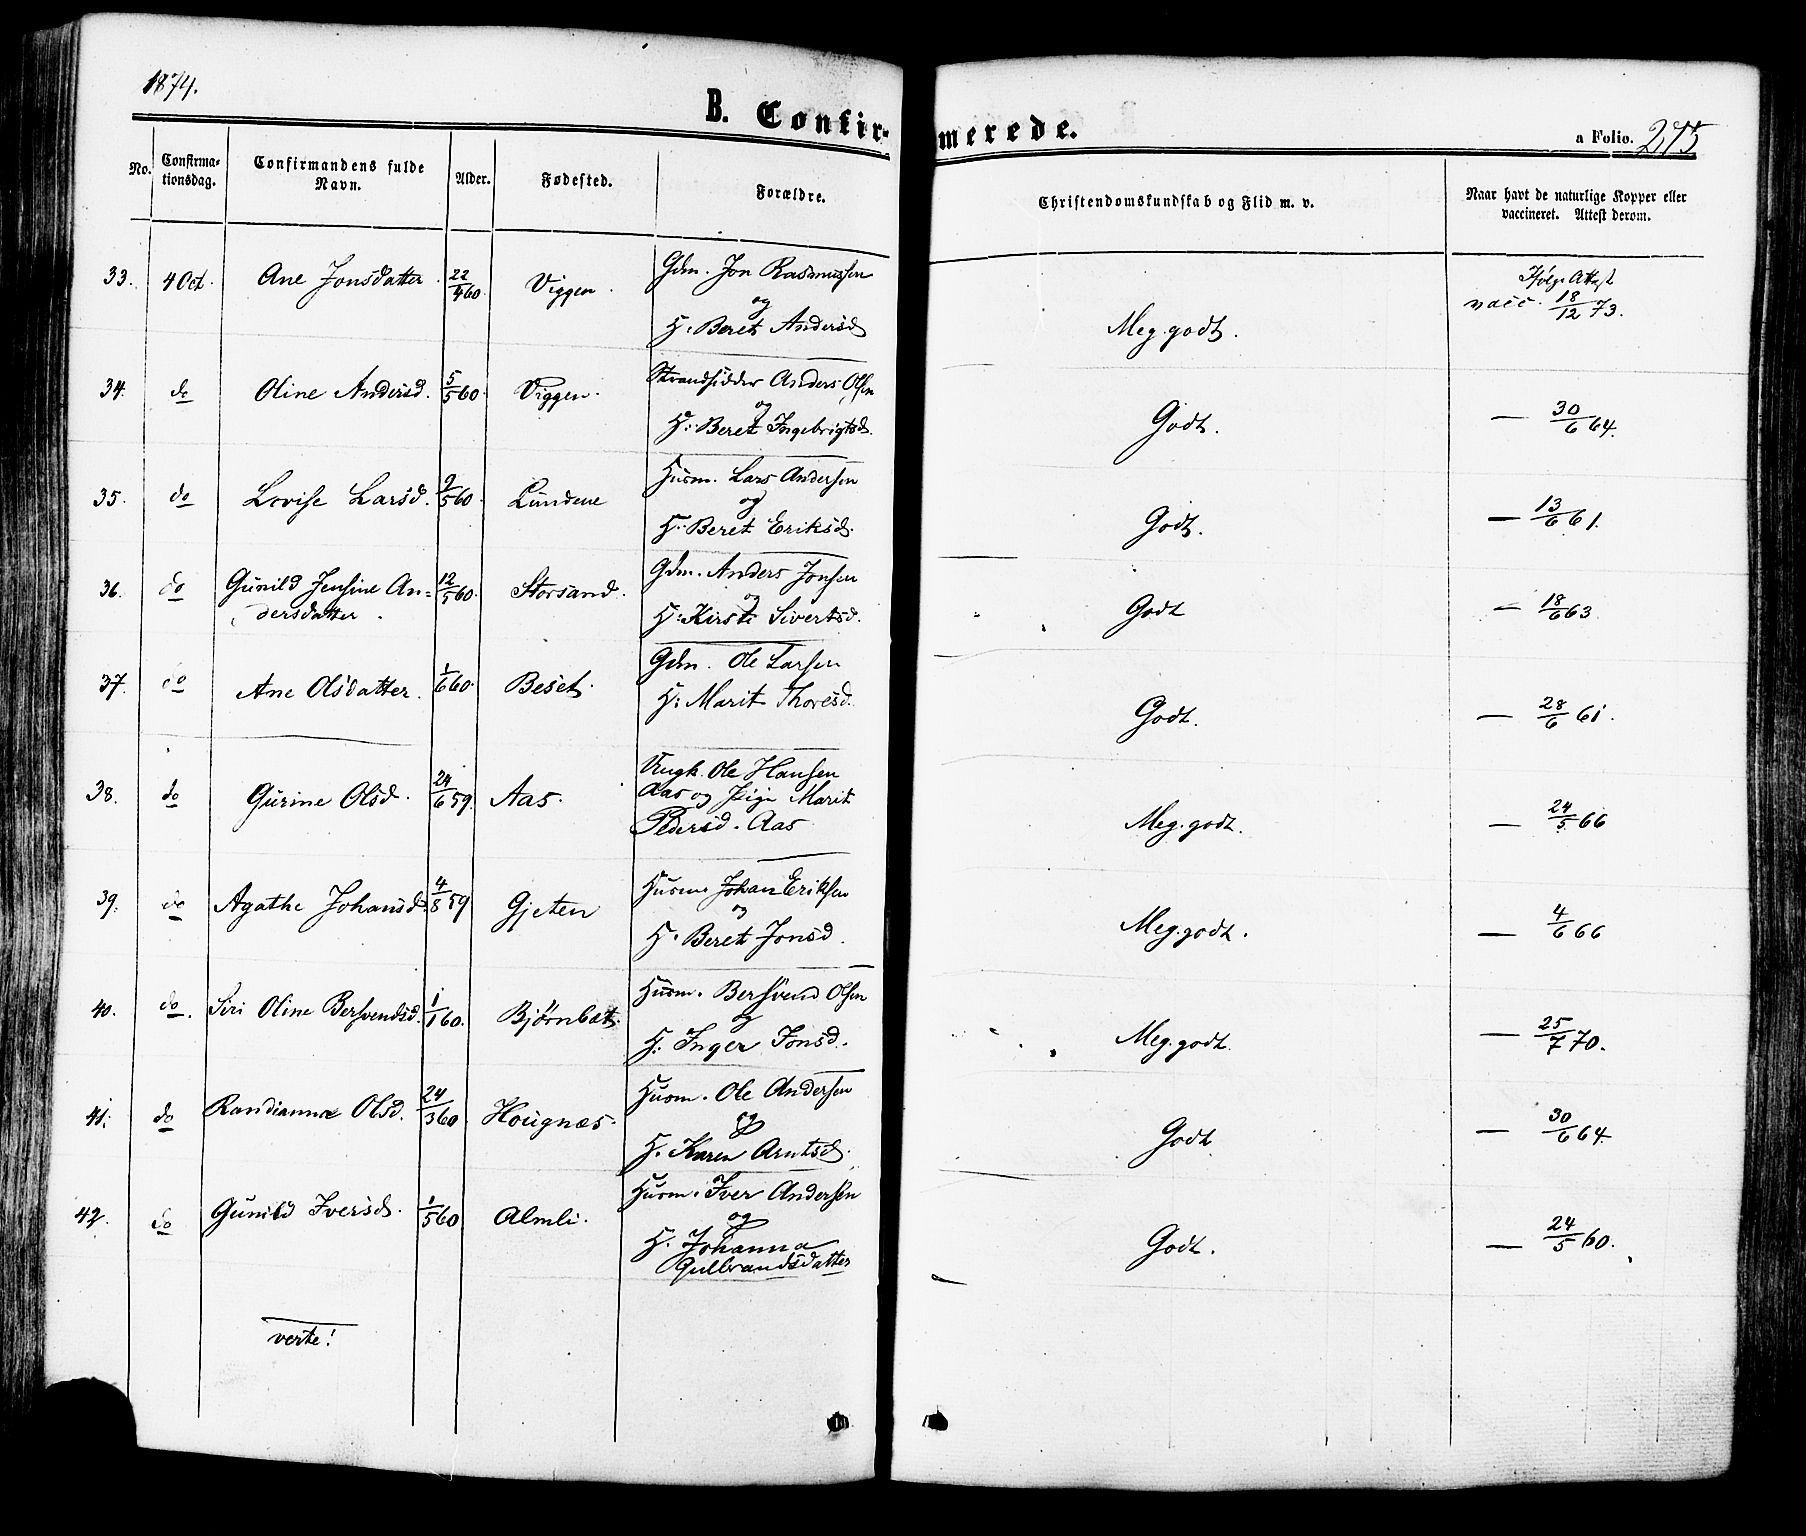 1874.
B. Confirmerede.
a Folio. 275
No. Confirmationsdag. Confirmandens fulde Navn. Alder. Fødested. Forældre. Christendomskundskab og Flid m. v. Naar havt de naturlige Kopper eller vaccineret. Attest derom.
33. 4 Oct. Ane Jonsdatter. 22/4 60. Viggen. Gdm. Jon Rasmussen og H. Beret Andersd Meg. godt. Ifølge Attest vacc. 18/12 73.
34. do Oline Andersd. 5/5 60. Viggen. Strandsidder Anders Olsen og H: Beret Ingebrigtsd. Godt. — 30/6 64.
35. do Lovise Larsd. 9/5 60. Lundene Husm. Lars Andersen og H: Beret Eriksd. Godt. — 13/6 61.
36. do Gunild Jensine Andersdatter. 12/5 60. Storsand. Gdm. Anders Jonsen og H: Kirsti Sivertsd. Godt — 18/6 63.
37. do Ane Olsdatter. 1/6 60. Beset. Gdm. Ole Larsen H: Marit Thoresd. Godt. — 28/6 61.
38. do Gurine Olsd. 24/6 59. Aas. Ungk. Ole Hansen Aas og Pige Marit Pedersd. Aas Meg. godt. — 24/5 66
39. do Agathe Johansd. 4/8 59 Gjeten Husm. Johan Eriksen og H. Beret Jonsd. Meg. godt. — 4/6 66
40. do. Siri Oline Bersvendsd. 1/1 60. Bjørnbæt. Husm. Bersvend Olsen og H. Inger Jonsd. Meg. godt. — 25/7 70.
41. do Randianna Olsd. 24/3 60 Hougnæs. Husm. Ole Andersen og H. Karen Arntsd. Godt. — 30/6 64.
42. do Gunild Iversd. 1/5 60 Almli. Husm. Iver Andersen og H. Johanna Gulbrandsdatter Godt. — 24/5 60.
verte!